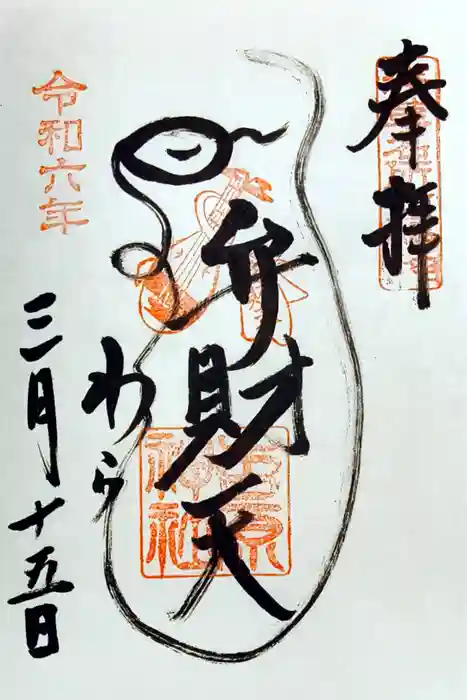 奉拝
弁財天
わら
令和六年
三月十五日